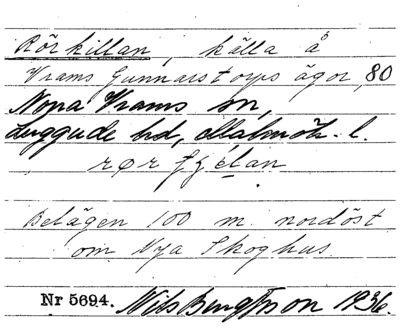 Rörkillan, källa å
Vrams Gunnarstorps ägor, 80
Norra Vrams sn,
Luggude hd, Malmöh. l.
rør
Belägen 100 m. nordöst
om Nya Skoghus.
Nr 5694. Nils Bengtsson 1936.